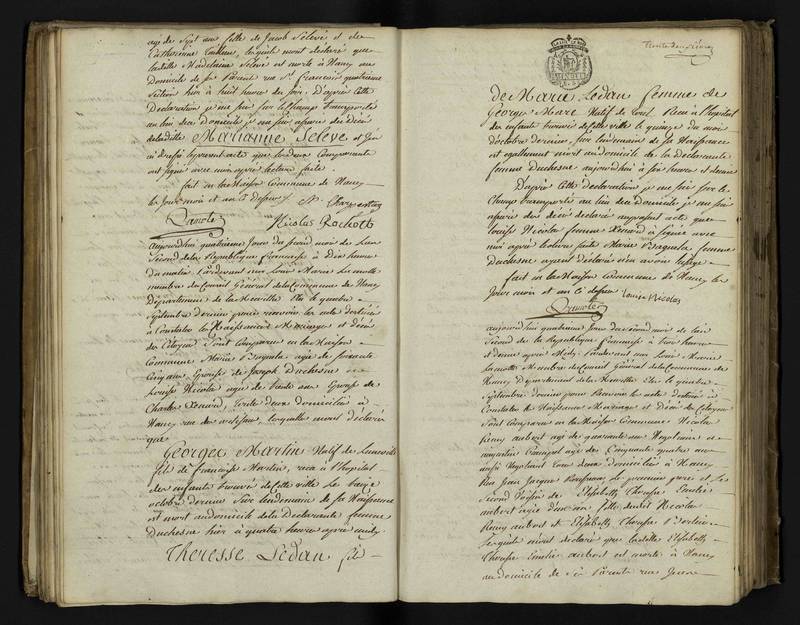 agé de Sept ans fille de Jacob Selevé et de
Catherine lesquels m'ont declaré que
ladite Madelaine Selevé est morte à Nancy au
Domicile de ses Parents rue St. François quatrieme
Section hier à huit heures du soir. D'après cette
Declaration je me suis sur le champ transporté
au lieu du Domicile je me suis assuré du décès
de ladite Marianne Seleve et j'en
ai dressé le présent acte que les deux Comparants
ont signé avec moi après lecture faite.
fait en la Maison Commune de Nancy
les Jour mois et an ci dessus
Nicolas Rochotte
aujourd'hui quatrieme Jour du second mois de l'an
Second de la Republique française à Dix heures
du matin Pardevant moi Louis Marie Lamotte
membre du Conseil Général de la Commune de Nancy
Departement de la Meurthe Elu le
Septembre dernier pour recevoir les actes destinés
à Constater les Naissances Mariages et décès
des Citoyens Sont Comparus en la Maison
Commune Marie Baguela agée de soixante
Cinq ans Epouse de Joseph Duchesne
Louise Nicolas agée de trente ans Epouse de
Charles toutes deux domiciliées à
Nancy rue des lesquelles m'ont déclaré
que
Georges Martin Natif de Luneville
fils de françoise Martin, recu à l'hopital
des enfants trouvés de cette ville Le
octobre dernier Sur lendemain de sa Naissance
est mort au domicile de la Declarante femme
Duchesne hier à quatre heures après midy
Theresse Ledan fa
Trente deuxième
de Marie Ledan femme de
Georges Mare Natif de Toul Recu à l'hopital
des enfants trouvés de cette ville le quinze du mois
d'octobre dernier, Sur lendemain de sa Naissance
est egallement mort au domicile de la Declarante
femme Duchesne aujourd'hui à six heures et demie
D'après Cette Declaration je me suis sur le
Champ transporté au lieu du Domicile je me suis
assuré des décès déclarés acte que
Louise Nicolas femme à Signé avec
moi après lecture faite Marie Baguela femme
Duchesne ayant déclaré n'en avoir l'usage
fait en la Maison commune de Nancy les
Jour mois et an ci dessus Louise Nicolas
aujourd'hui quatrieme Jour du second mois de l'an
Second de la Republique françoise à trois heures
et demie après Midy Pardevant moi Louis Marie
Lamotte Membre du Conseil Général de la Commune de
Nancy Departement de la Meurthe Elu le
Septembre dernier pour recevoir les actes destinés à
Constater les Naissances Mariages et Décès des Citoyens
Sont Comparus en la Maison Commune Nicolas
Remy aubert agé de quarante ans Negotiant et
agé de Cinquante quatre ans
aussi Negotiant tous deux Domiciliés à Nancy
Rue Jean Jacques Rousseau Le premier pere et Le
Second Voisin de Elisabeth Therese Emilie
aubert agée d'un an fille de Nicolas
Remy aubert et Elisabeth Therese
Lesquels m'ont déclaré que ladite Elisabeth
Therese Emilie aubert est morte à Nancy
au domicile de ses Parents rue Jean